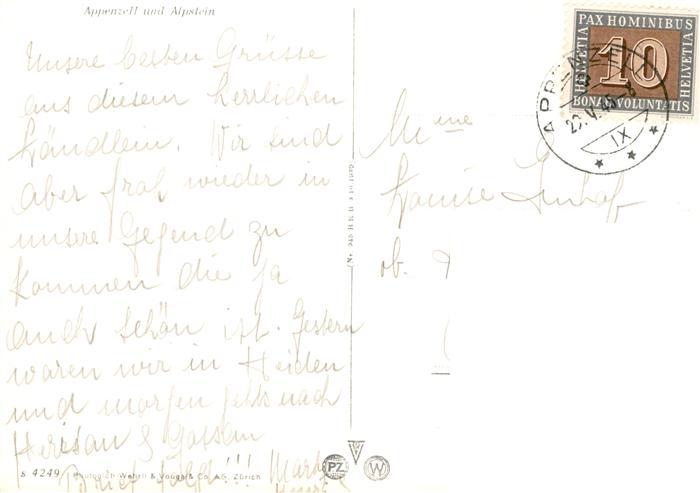 Appenzell und Alpstein
Unsere besten Grüsse
aus diesem herrlichen
Ländlein. Wir sind
aber froh wieder in
unsere Gegend zu
kommen die ja
auch schön ist. Gestern
waren wir in Heiden
und morgen gehts nach
Herisau & Gossau
Brief folgt!!!
S 4249 Photoglob-Wehrli & Vouga & Co. AG. Zürich
PZ
W
PAX HOMINIBUS
HELVETIA
10
HELVETIA
BONAE VOLUNTATIS
APPENZELL
IX
Mme
Louise
ob.